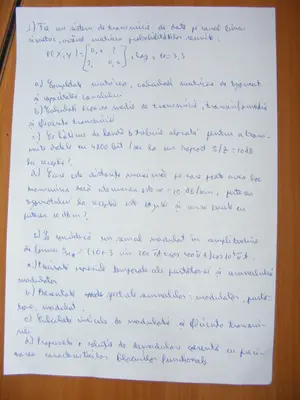 1) Fie un sistem de transmisie de date pe canal binar
simetric, având matricea probabilităților comune:
P(X,Y) = [0,4 ?
?, 0,4], log₂ 10 = 3,3
a) Completați matricea, calculați matricea de zgomot
și capacitatea canalului
b) Calculați viteza medie de transmisie,
și eficiența transmisiei
c) Ce lățime de bandă trebuie alocată pentru a trans-
mite datele cu 4800 bit/sec la un raport S/Z = 10 dB
la recepție?
d) Care este distanța maximă pe care poate avea loc
transmisia dacă atenuarea este = 10 dB/km, puterea
zgomotului la recepție este și sursa emite cu
puterea
2) Se consideră un semnal modulat în amplitudine
de forma: s = (10+3
a) Precizați expresiile temporale ale purtătoarei și semnalului
modulator
b) Reprezentați spectrele semnalelor: modulator, purtă-
toare, modulat.
c) Calculați indicele de modulație și eficiența transmi-
siei
d) Propuneți o soluție de demodulare coerentă cu preci-
zarea caracteristicilor blocurilor funcționale